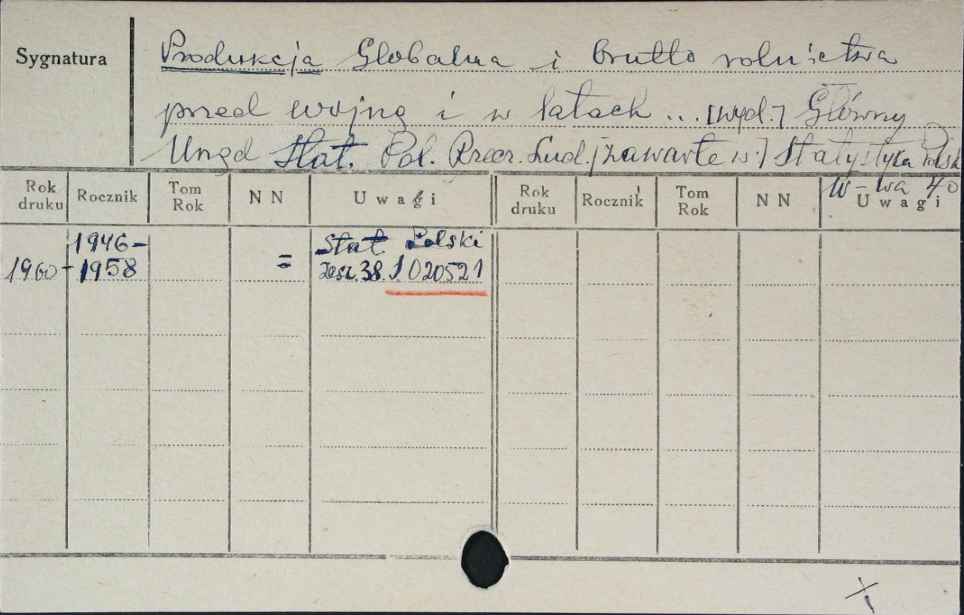 Sygnatura
Produkcja Globalna i brutto rolnictwa
przed wojną i w latach... [wyd.] Główny
Urząd Stat. Pol. Rzecz. Lud. [zawarte w:] Statystyka Polsk
W-wa 40
Rok druku Rocznik Tom Rok N N Uwagi Rok druku Rocznik Tom Rok N N Uwagi
1946- Stat Polski
1960 1958 = zesz. 38. 1020521